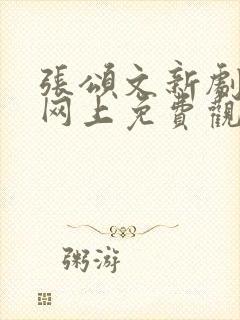 張頌文新劇
网上免費觀
粥游